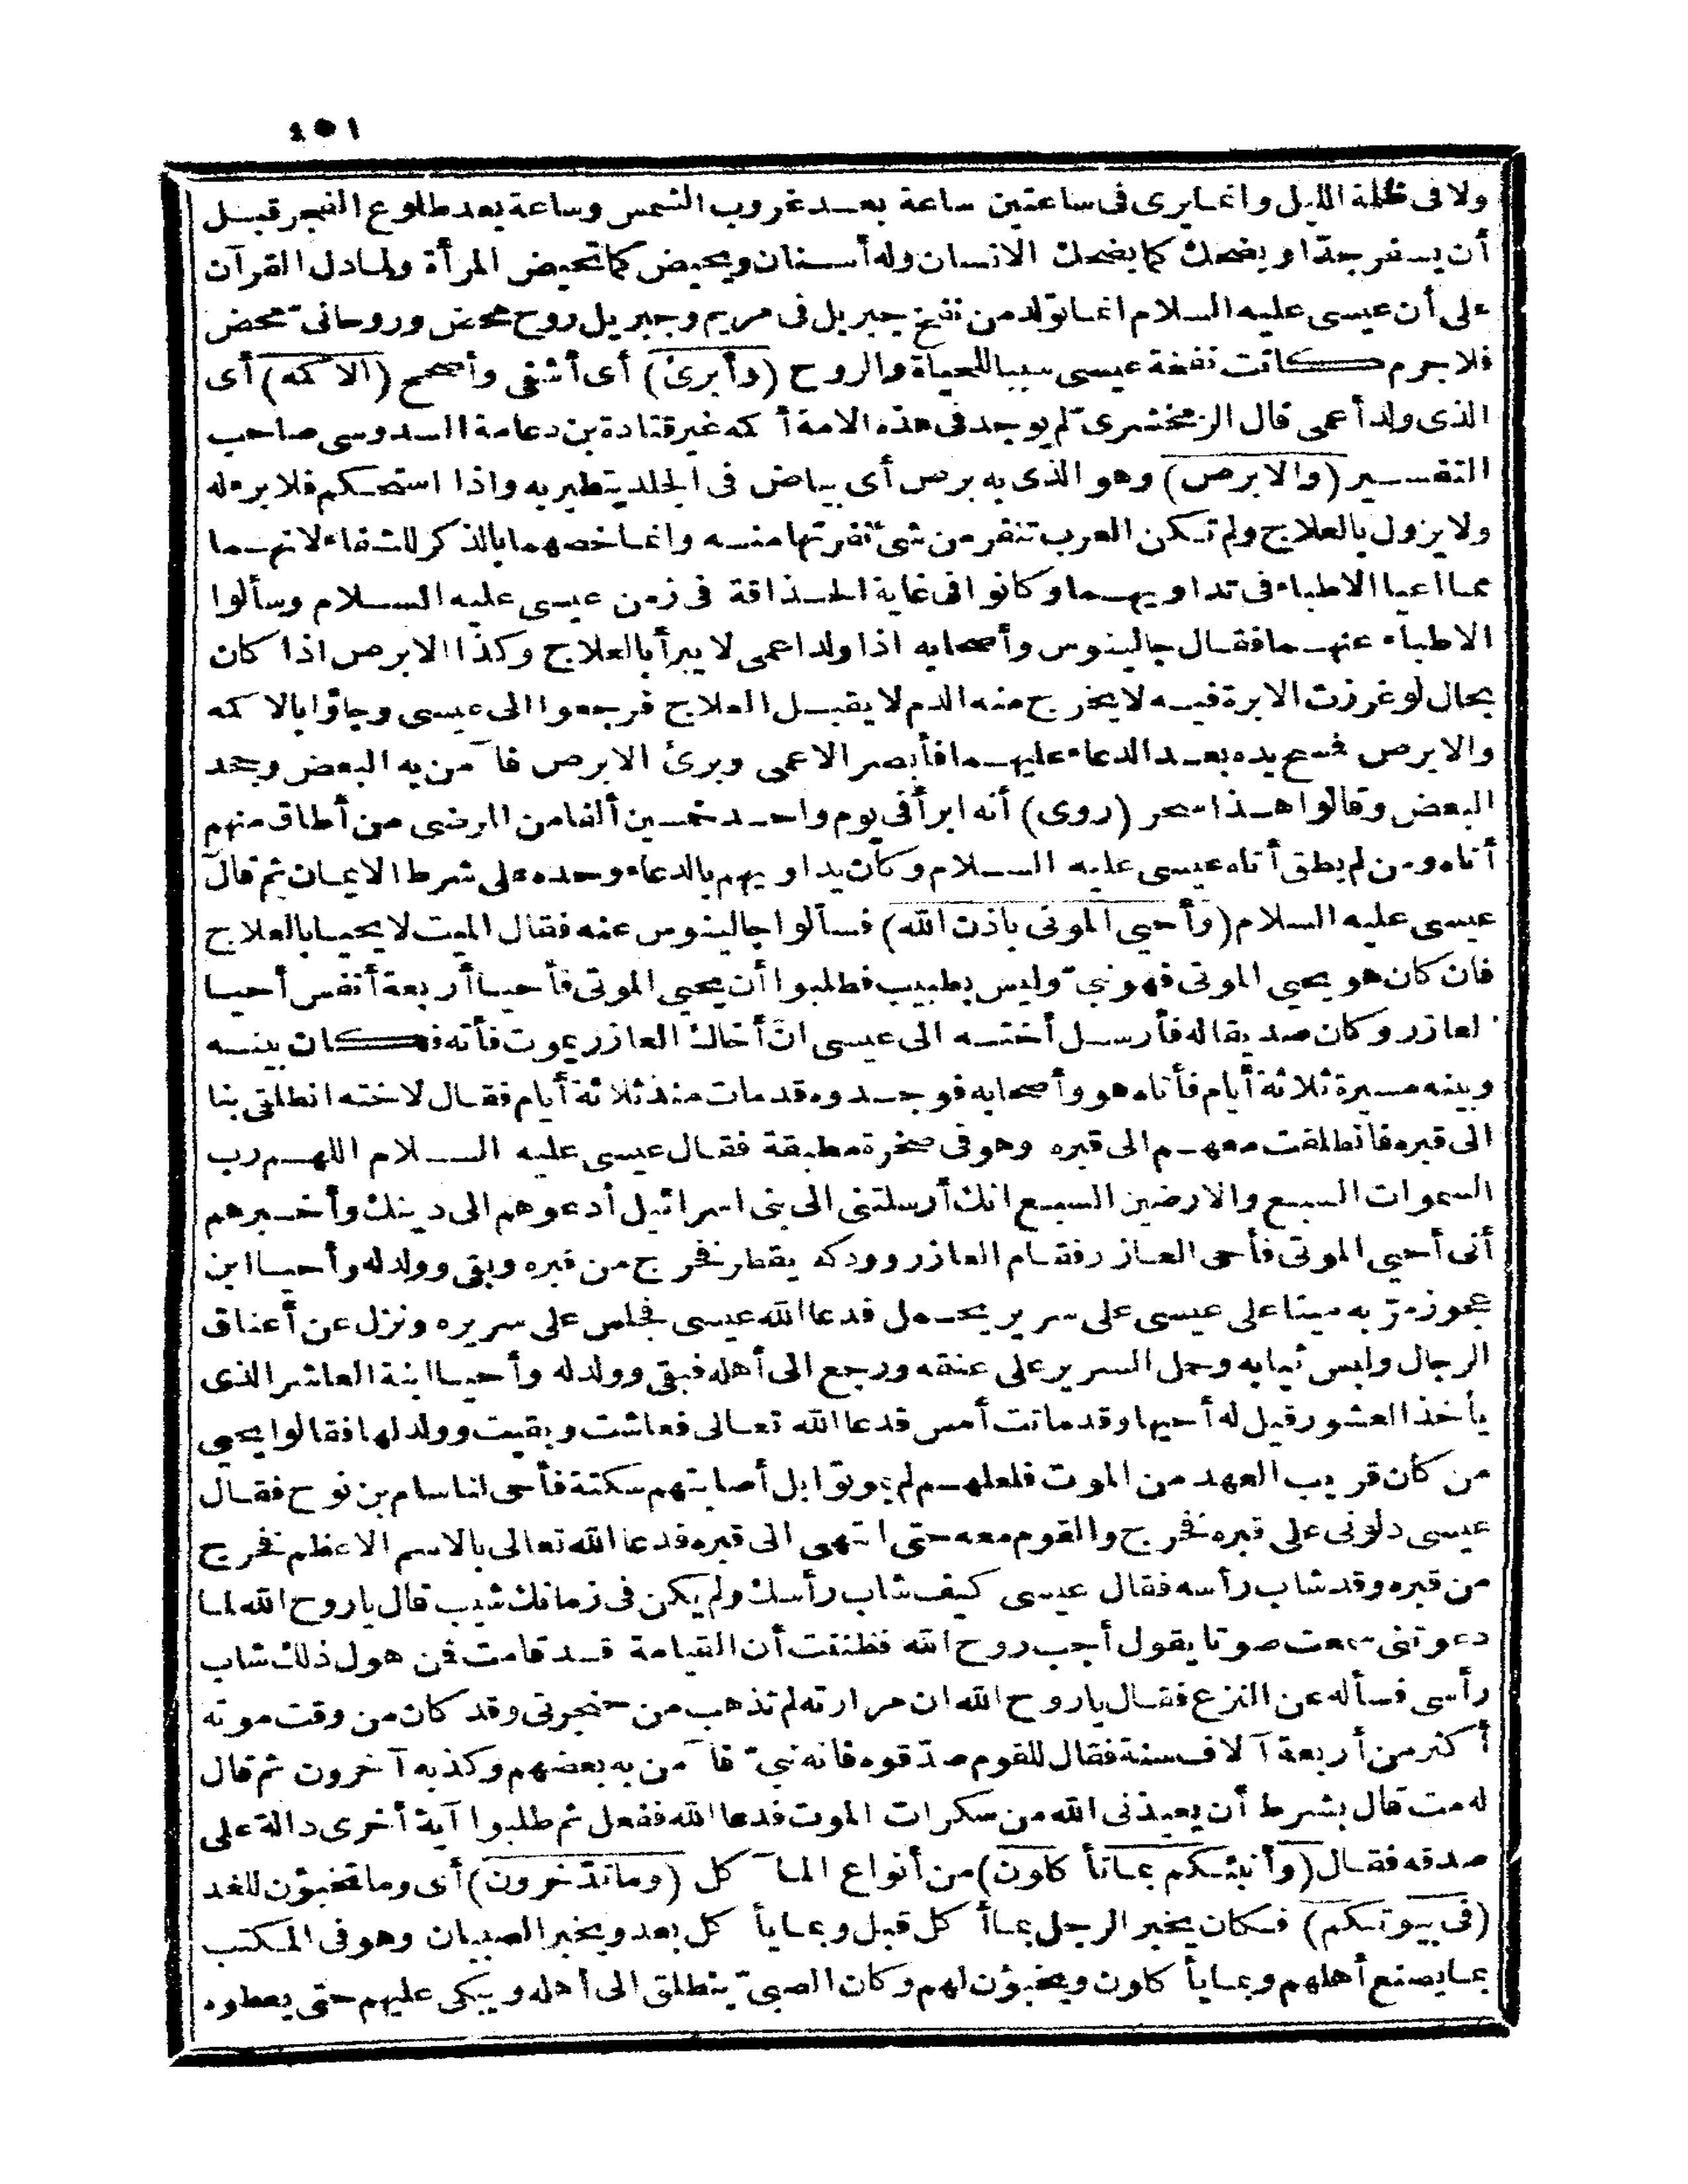 ٤٥١
ولا فى ظلمة الليل وانما يرى فى ساعتين ساعة بعد غروب الشمس وساعة بعد طلوع الفجر قبل
أن يسفر جدّا ويضحك كما يضحك الانسان وله أسنان ويحيض كما تحيض المرأة ولما دل القرآن
على أن عيسى عليه السلام انما تولد من نفخ جبريل فى مريم وجبريل روح محض وروحانى محض
فلا جرم كانت نفخة عيسى سببا للحياة والروح (وأبرئ) أى أشفى وأصحح (الاكمه) أى
الذى ولد أعمى قال الزمخشرى لم يوجد فى هذه الامة أكمه غير قتادة بن دعامة السدوسى صاحب
التفسير (والابرص) وهو الذى به برص أى بياض فى الجلد يتطير به واذا استحكم فلا برء له
ولا يزول بالعلاج ولم تكن العرب تنفر من شئ نفرتها منه وانما خصهما بالذكر للشفاء لانهما
مما اعيا الاطباء فى تداويهما وكانوا فى غاية الحذاقة فى زمن عيسى عليه السلام وسألوا
الاطباء عنهما فقال جالينوس وأصحابه اذا ولد اعمى لا يبرأ بالعلاج وكذا الابرص اذا كان
بحال لو غرزت الابرة فيه لا يخرج منه الدم لا يقبل العلاج فرجعوا الى عيسى وجاؤا بالاكمه
والابرص فمسح يده بعد الدعاء عليهما فأبصر الاعمى وبرئ الابرص فآمن به البعض وجحد
البعض وقالوا هذا سحر (روى) أنه ابرأ فى يوم واحد خمسين ألفا من المرضى من أطاق منهم
أتاه ومن لم يطق أتاه عيسى عليه السلام وكان يداويهم بالدعاء وحده على شرط الايمان ثم قال
عيسى عليه السلام (وأحيى الموتى باذن الله) فسألوا جالينوس عنه فقال الميت لا يحيا بالعلاج
فان كان هو يحيى الموتى فهو نبىّ وليس بطبيب فطلبوا أن يحيى الموتى فأحيا أربعة أنفس أحيا
العازر وكان صديقا له فأرسل أخته الى عيسى انّ أخاك العازر يموت فأته فكان بينه
وبينه مسيرة ثلاثة أيام فأتاه هو وأصحابه فوجدوه قد مات منذ ثلاثة أيام فقال لاخته انطلقى بنا
الى قبره فانطلقت معهم الى قبره وهو فى صخرة مطبقة فقال عيسى عليه السلام اللهم رب
السموات السبع والارضين السبع انك أرسلتنى الى بنى اسرائيل أدعوهم الى دينك وأخبرهم
أنى أحيى الموتى فأحى العازر فقام العازر وودكه يقطر فخرج من قبره وبقى وولد له وأحيا ابن
عجوز مرّ به ميتا على عيسى على سرير يحمل فدعا الله عيسى فجلس على سريره ونزل عن أعناق
الرجال ولبس ثيابه وحمل السرير على عنقه ورجع الى أهله فبقى وولد له وأحيا ابنة العاشر الذى
يأخذ العشور قيل له أحيها وقد ماتت أمس فدعا الله تعالى فعاشت وبقيت وولد لها فقالوا يحيى
من كان قريب العهد من الموت فلعلهم لم يموتوا بل أصابتهم سكتة فأحى لنا سام بن نوح فقال
عيسى دلونى على قبره فخرج والقوم معه حتى انتهى الى قبره فدعا الله تعالى بالاسم الاعظم فخرج
من قبره وقد شاب رأسه فقال عيسى كيف شاب رأسك ولم يكن فى زمانك شيب قال يا روح الله لما
دعوتنى سمعت صوتا يقول أجب روح الله فظننت أن القيامة قد قامت فمن هول ذلك شاب
رأسى فسأله عن النزع فقال يا روح الله ان مرارته لم تذهب من حنجرتى وقد كان من وقت موته
أكثر من أربعة آلاف سنة فقال للقوم صدّقوه فانه نبىّ فآمن به بعضهم وكذبه آخرون ثم قال
له مت قال بشرط أن يعيذنى الله من سكرات الموت فدعا الله ففعل ثم طلبوا آية أخرى دالة على
صدقه فقال (وأنبئكم بما تأكلون) من أنواع المآكل (وما تدّخرون) أى وما تخبؤن للغد
(فى بيوتكم) فكان يخبر الرجل بما أكل قبل وبما يأكل بعد ويخبر الصبيان وهو فى المكتب
بما يصنع أهلهم وبما يأكلون ويخبؤن لهم وكان الصبىّ ينطلق الى أهله ويبكى عليهم حتى يعطوه